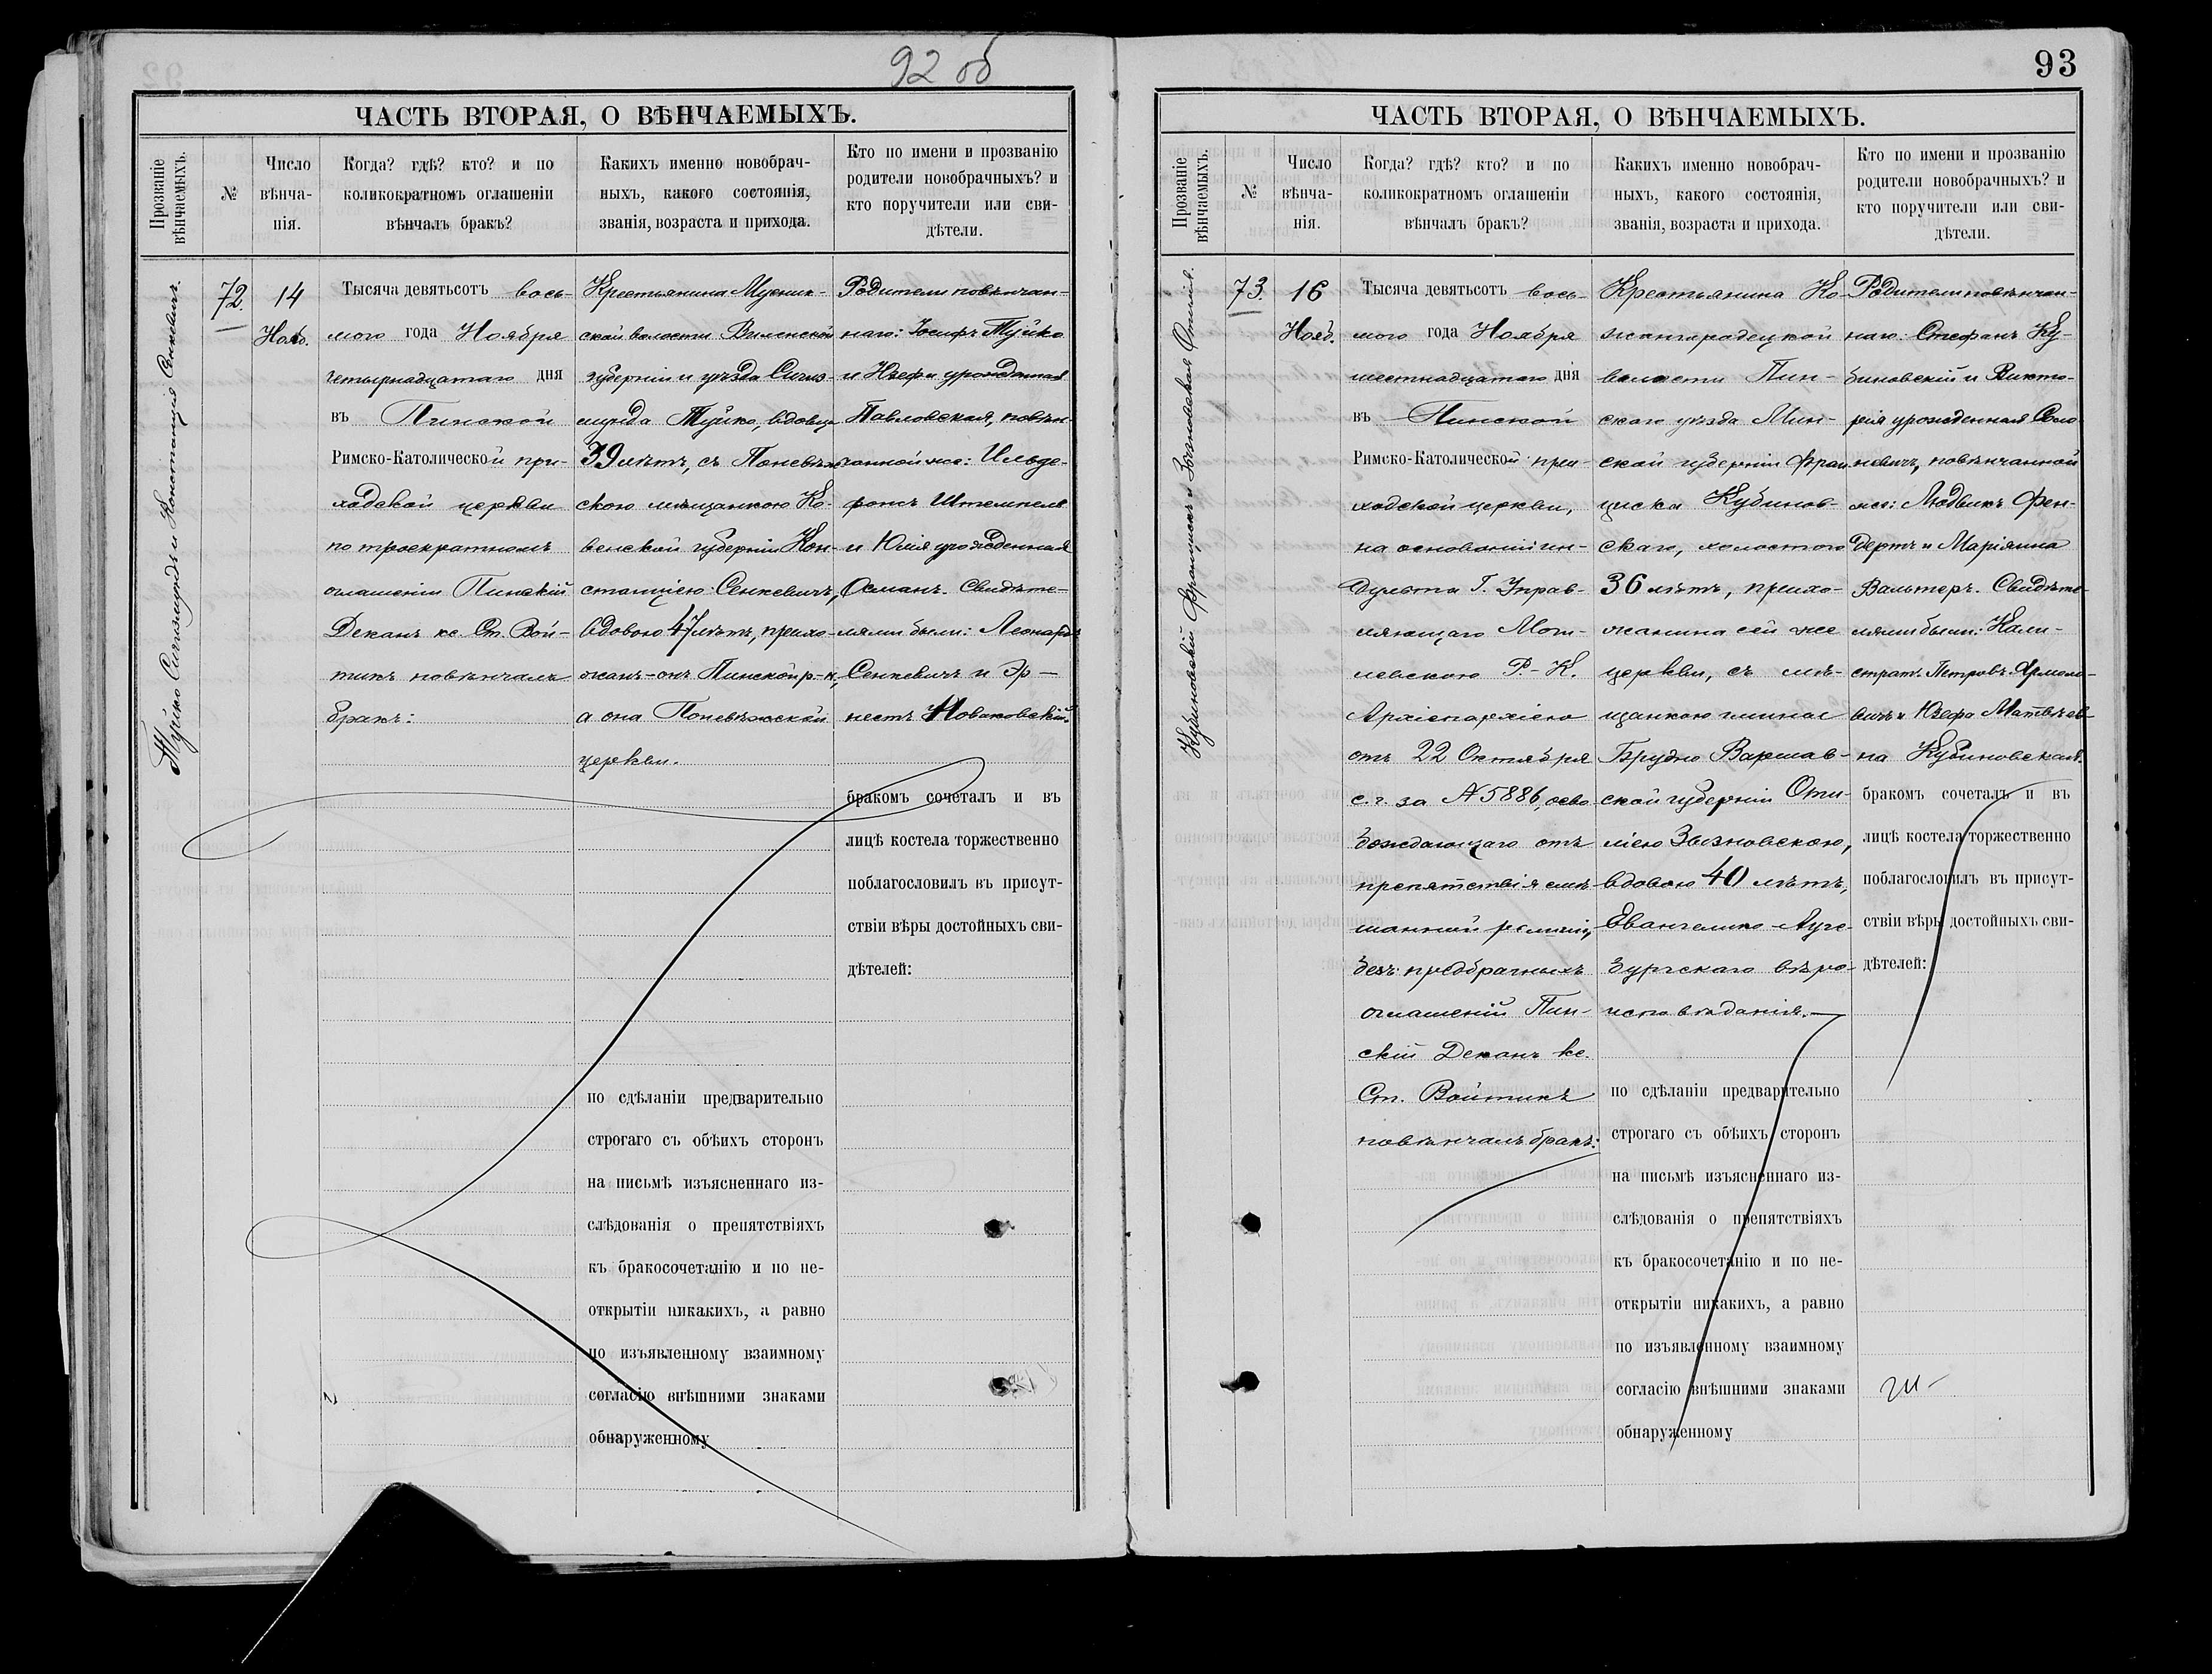 92 об
ЧАСТЬ ВТОРАЯ, О ВѢНЧАЕМЫХЪ.
Прозваніе
вѣнчаемыхъ.
№
Число
вѣнча-
нія.
Когда? гдѣ? кто? и по
коликократномъ оглашеніи
вѣнчалъ бракъ?
Какихъ именно новобрач-
ныхъ, какого состоянія,
званія, возраста и прихода.
Кто по имени и прозванію
родители новобрачныхъ? и
кто поручители или сви-
дѣтели.
Туйко Сигизмундъ и Констанція Сенкевичъ.
72.
14
Нояб.
Тысяча девятьсотъ вось-
мого года Ноября
четырнадцатаго дня
въ Пинской
Римско-Католической при-
ходской церкви
по троекратномъ
оглашеніи Пинскій
Деканъ кс. Ст. Вой-
тикъ повѣнчалъ
бракъ:
Крестьянина Мусник-
ской волости Виленской
губерніи и уѣзда Сигиз-
мунда Туйко, вдовца
39 лѣтъ, съ Поневѣж-
скою мѣщанкою Ко-
венской губерніи Кон-
станціею Сенкевичъ,
вдовою 47 лѣтъ, прихо-
жанъ-онъ Пинской р.-к.,
а она Поневѣжской
церкви.
по сдѣланіи предварительно
строгаго съ обѣихъ сторонъ
на письмѣ изъясненнаго из-
слѣдованія о препятствіяхъ
къ бракосочетанію и по не-
открытіи никакихъ, а равно
по изъявленному взаимному
согласію внѣшними знаками
обнаруженному
Родители повѣнчан-
наго: Іосифъ Туйко
и Юзефа урожденная
Павловская, повѣн-
чанной же: Ильде-
фонсъ Штемпель
и Юлія урожденная
Османъ. Свидѣте-
лями были: Леонардъ
Сенкевичъ и Эр-
нестъ Новаковскій
бракомъ сочеталъ и въ
лицѣ костела торжественно
поблагословилъ въ присут-
ствіи вѣры достойныхъ сви-
дѣтелей:
93
ЧАСТЬ ВТОРАЯ, О ВѢНЧАЕМЫХЪ.
Прозваніе
вѣнчаемыхъ.
№
Число
вѣнча-
нія.
Когда? гдѣ? кто? и по
коликократномъ оглашеніи
вѣнчалъ бракъ?
Какихъ именно новобрач-
ныхъ, какого состоянія,
званія, возраста и прихода.
Кто по имени и прозванію
родители новобрачныхъ? и
кто поручители или сви-
дѣтели.
Кубиновскій Францискъ и Отилія.
73.
16
Нояб.
Тысяча девятьсотъ вось-
мого года Ноября
шестнадцатаго дня
въ Пинской
Римско-Католической при-
ходской церкви,
на основаніи ин-
дульта Г. Управ-
ляющаго Моги-
левскою Р.-К.
Архіепархіею
отъ 22 Октября
с. г. за № 5886, осво-
бождающаго отъ
препятствія смѣ-
шанной религіи,
безъ предбрачныхъ
оглашеній Пин-
скій Деканъ кс.
Ст. Войтикъ
повѣнчалъ бракъ:
Крестьянина Ко-
жангородецкой
волости Пин-
скаго уѣзда Мин-
ской губерніи Фран-
циска Кубинов-
скаго, холостого
36 лѣтъ, прихо-
жанина сей же
церкви, съ мѣ-
щанкою гмины
Брудно Варшав-
ской губерніи Оти-
ліею
вдовою 40 лѣтъ,
Евангелико-Ауге-
бургскаго вѣро-
исповѣданія.
по сдѣланіи предварительно
строгаго съ обѣихъ сторонъ
на письмѣ изъясненнаго из-
слѣдованія о препятствіяхъ
къ бракосочетанію и по не-
открытіи никакихъ, а равно
по изъявленному взаимному
согласію внѣшними знаками
обнаруженному
Родители повѣнчан-
наго: Стефанъ Ку-
биновскій и Викто-
рія урожденная
повѣнчанной
же: Людвикъ Фен-
дертъ и Маріанна
Вальтеръ. Свидѣте-
лями были: Кали-
стратъ Петровъ Ярмоло-
вичъ и Юзефа Матвѣев-
на Кубиновская.
бракомъ сочеталъ и въ
лицѣ костела торжественно
поблагословилъ въ присут-
ствіи вѣры достойныхъ сви-
дѣтелей: